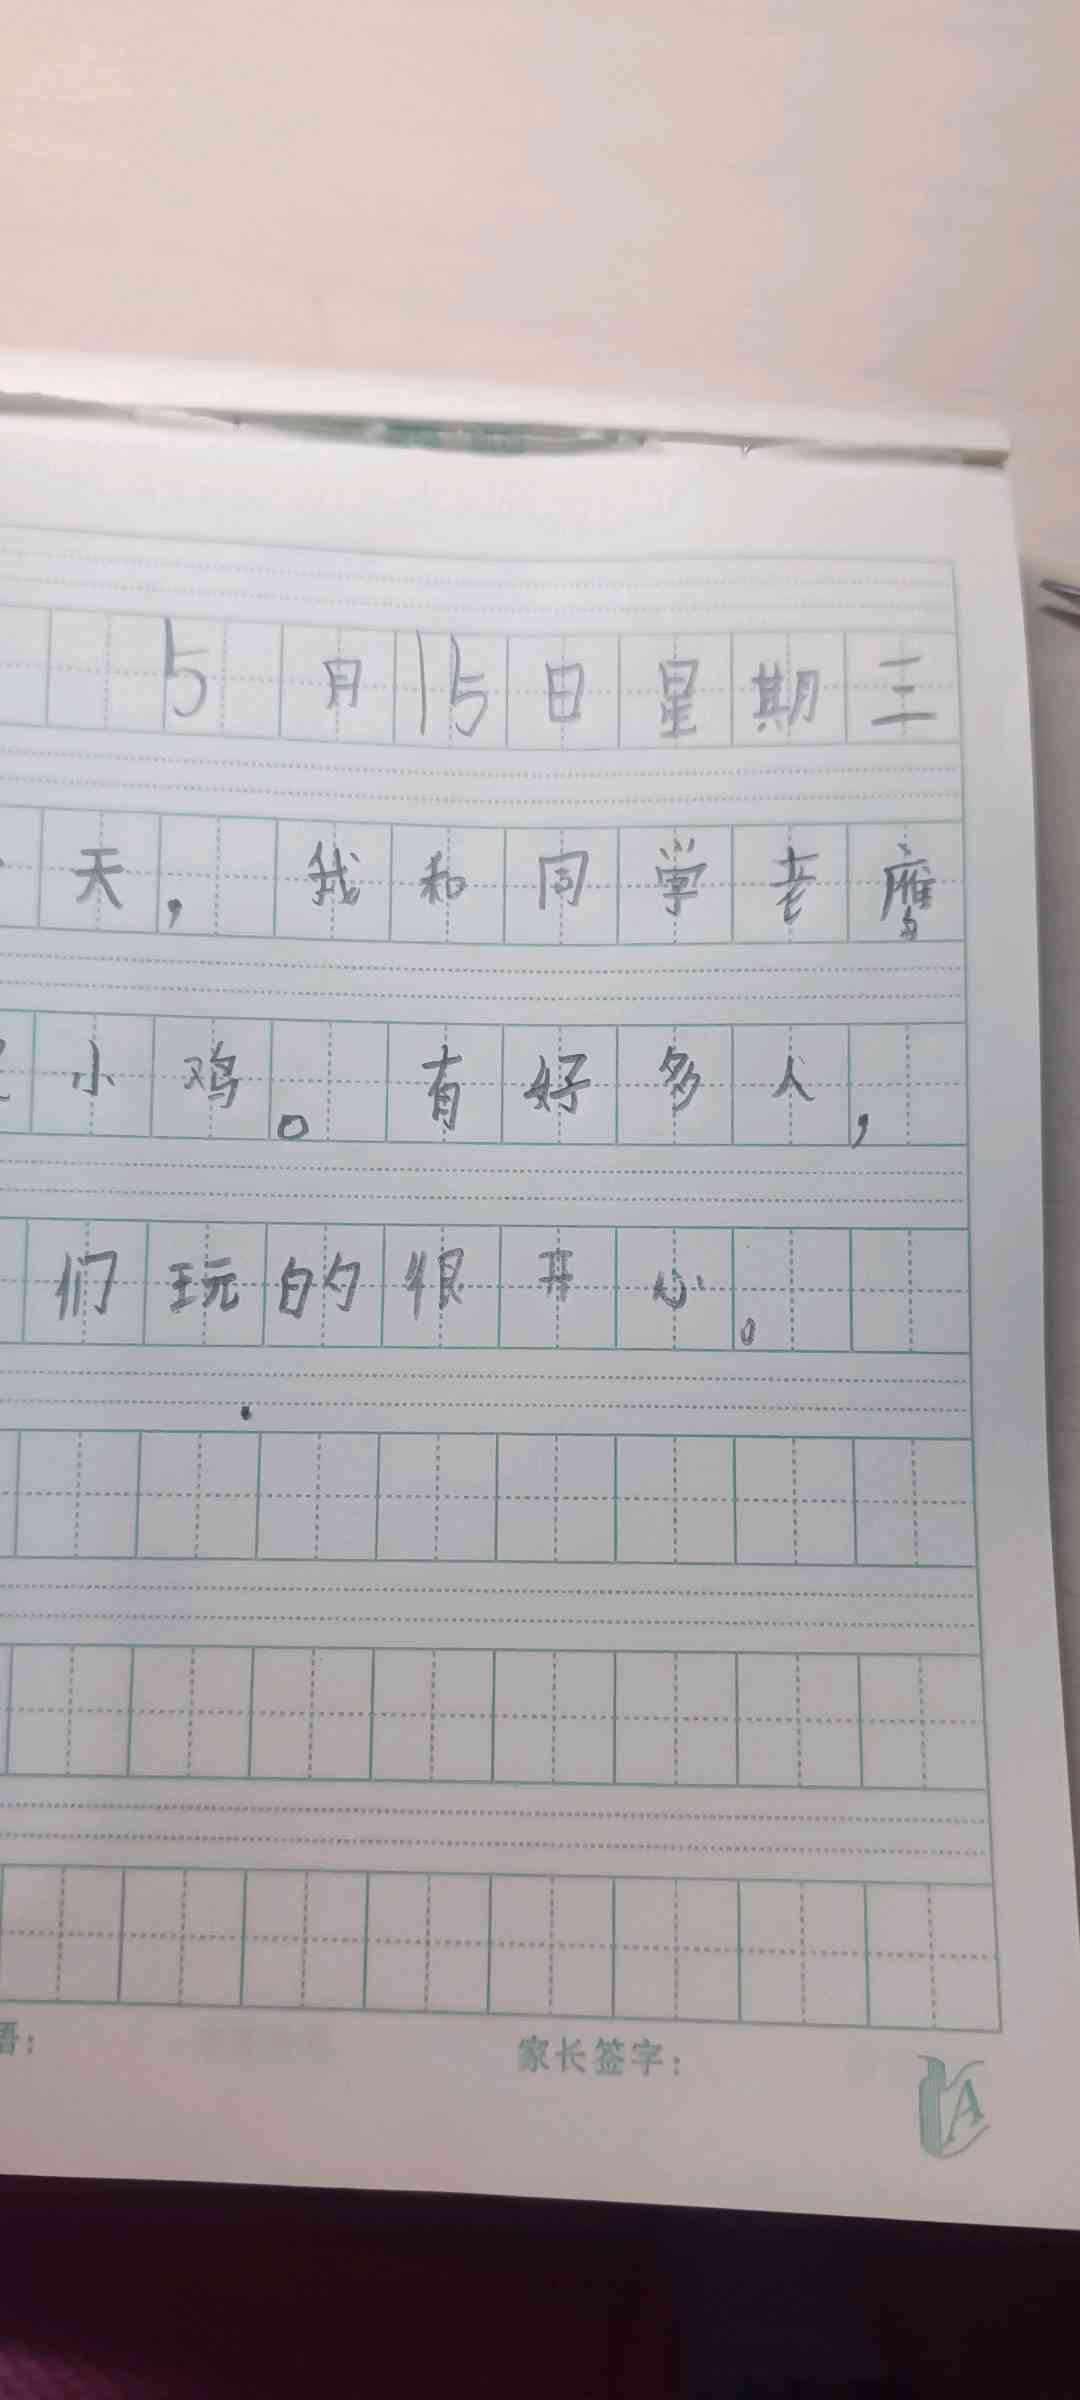 5月15日星期三
天，我和同学老鹰
小鸡。有好多人，
们玩的很开心。
语：
家长签字：
A